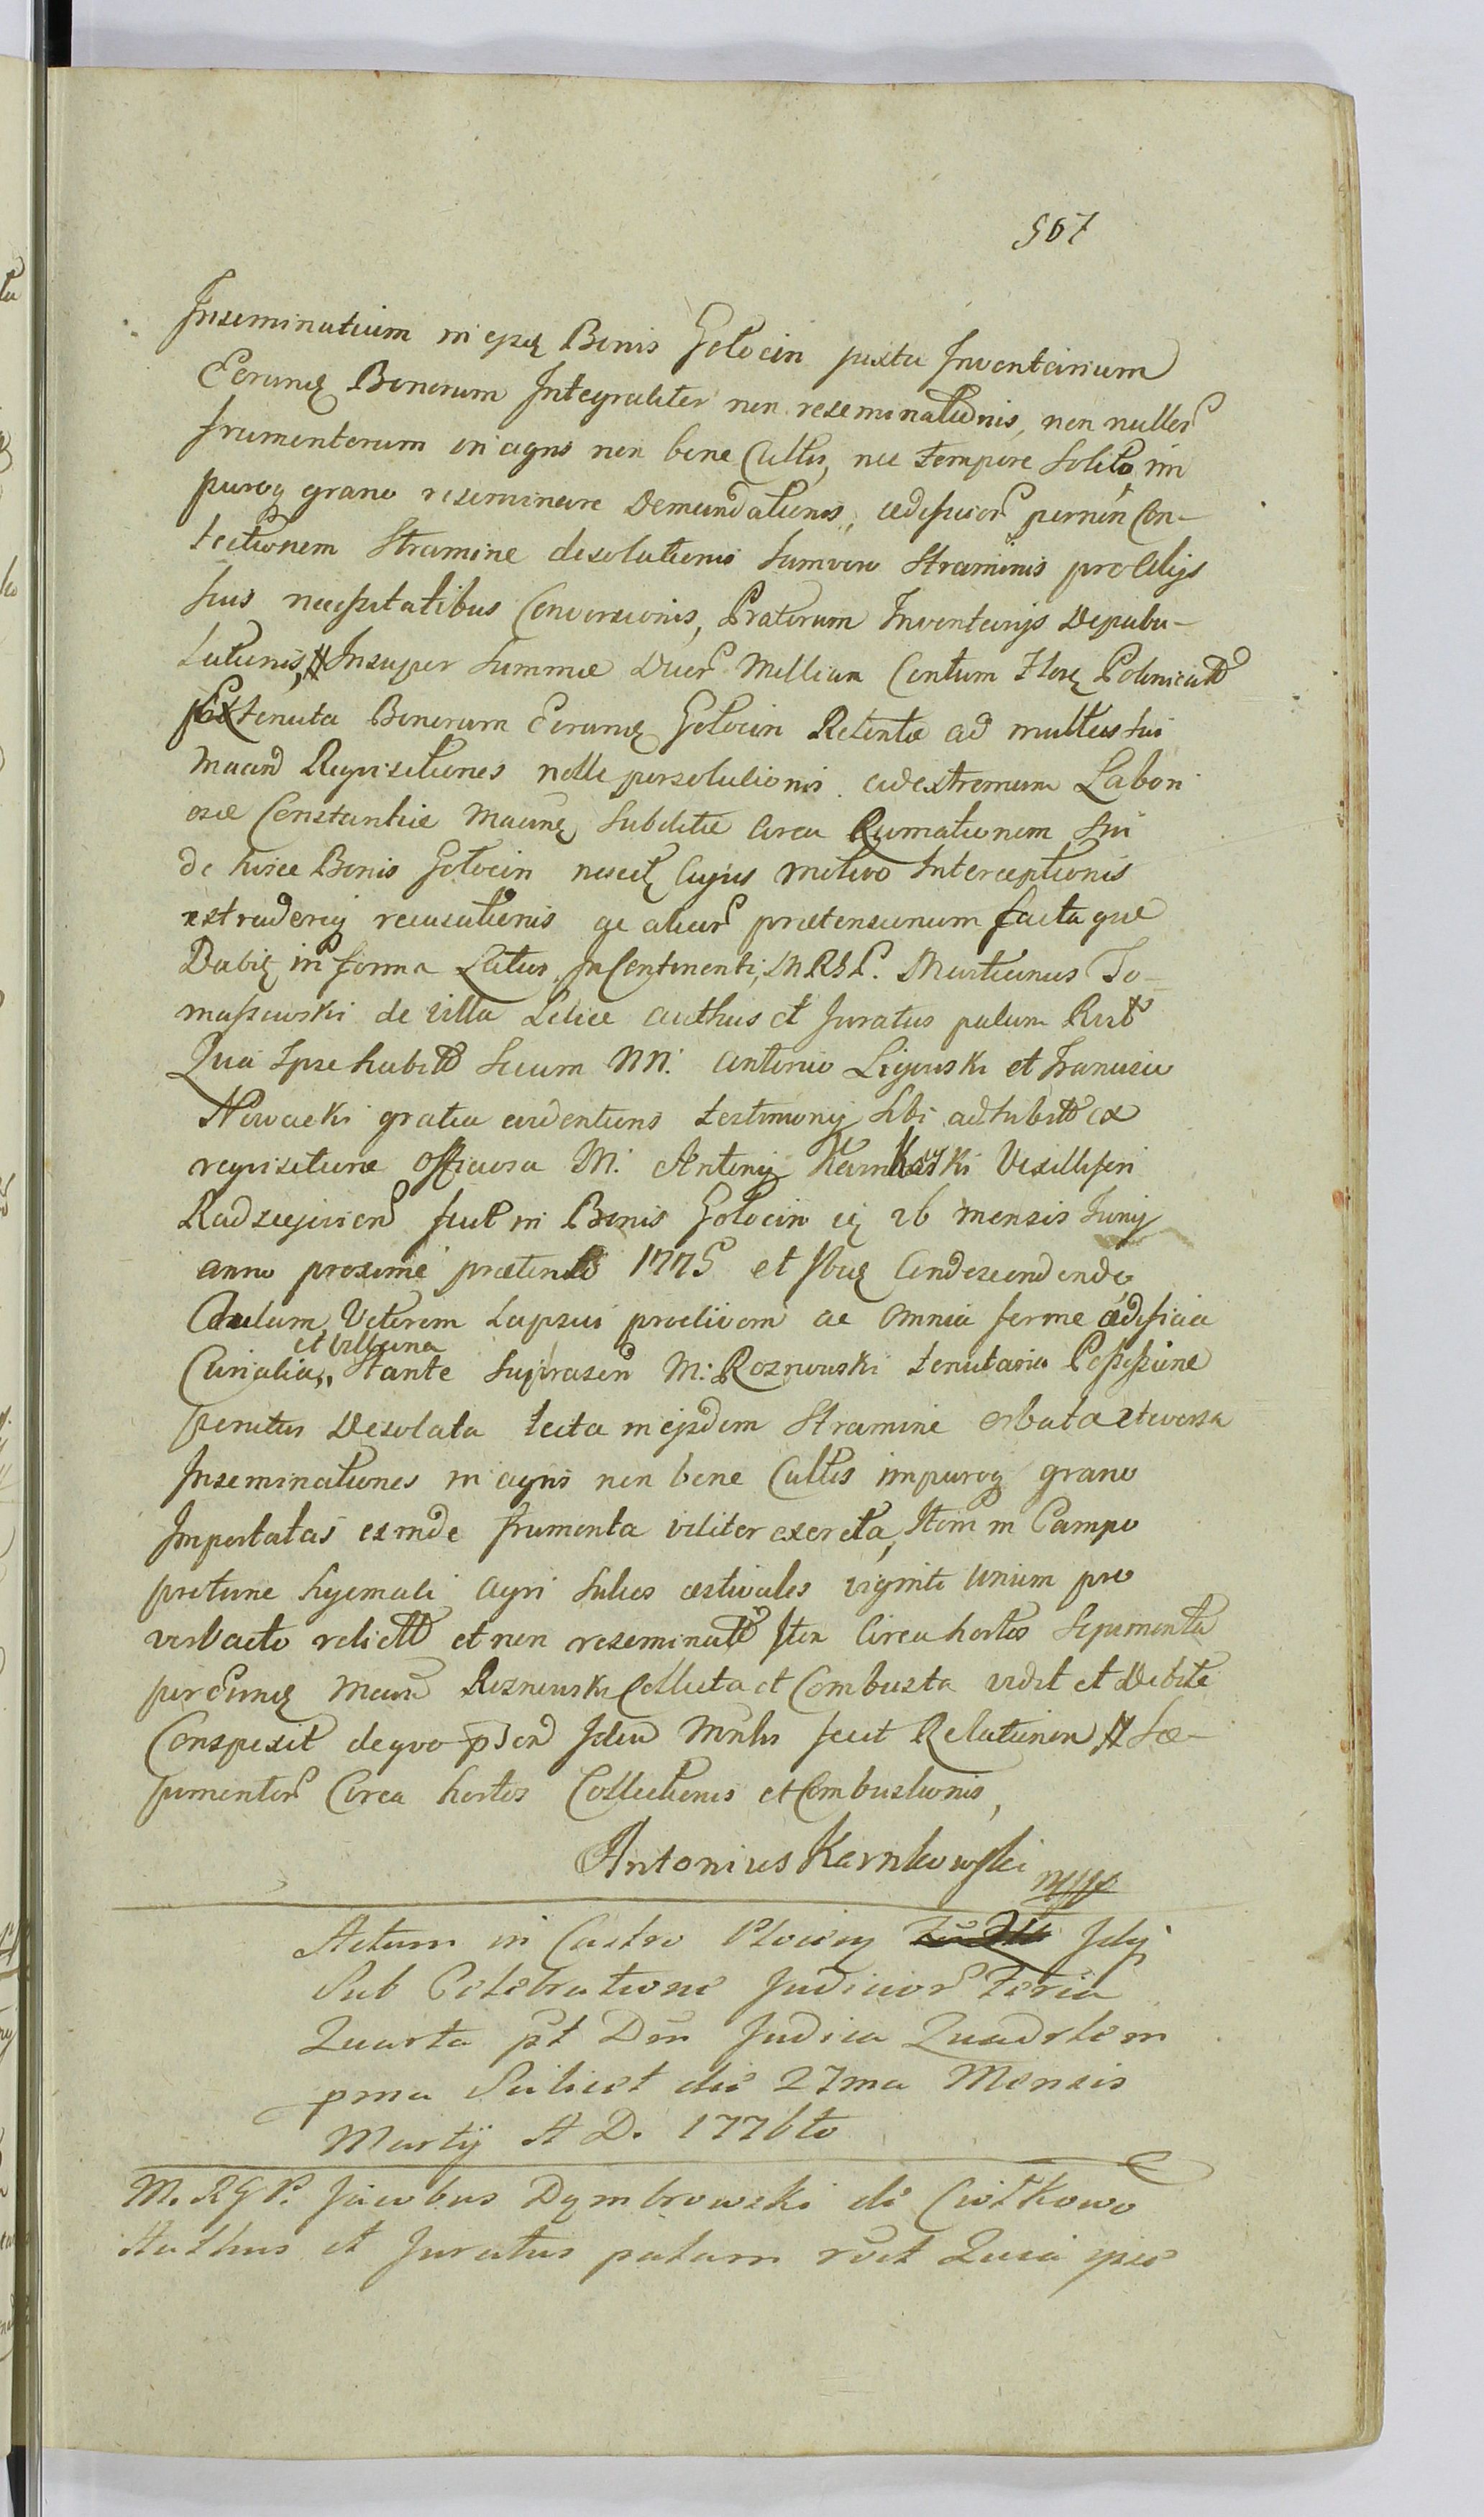 567
Inseminatium in ejsq Bonis Gołocin juxta Inventarium
Eorunq Bonorum Integraliter non reseminationis, non nullor
frumentorum in agris non bene Cultis, nec tempore Solito, im
puroq grano reseminare Demandationis, ædificior per non Con-
tectionem Stramine desolationis Samven Straminis pro aliis
suis necessitatibus Conversionis, Pratorum Inventarijs Depabu-
lationis, # Insuper Summæ Duor Millium Centum Flor Polonical
Ex tenuta Bonorum Eorunq Gołocin Retentæ ad multas sui
Macnd Requisitiones nolle persolutionis adextremum Labori
osæ Constantiæ Macnq Subditæ circa Rumationem Sui
de hisce Bonis Gołocin nescitq Cujus motivo Interceptionis
extraderiq recusationis ac aliar prætensionum factaque
Dabiq in forma Latius. In Continenti, MRGP. Martianus To-
maszewski de villa Lelice authus et Juratus palam Rcit
Quia Ipse habitt Secum NN: Antonio Ligowski et Francisco
Nowacki gratia evidentioris testimonij sibi adhibitt ex
requisitione Officiosa M: Antonij Karnkowski Vexilliferi
Radziejovien fuit in Bonis Gołocin iq 26 mensis Junij
anno proxime præterito 1775 et Ibiq Condescendendo
Aulam Veterem Lapsui proclivem ac omnia ferme ædificia
et villana
Curialia,, Stante Suprascri M: Roznowski tenutario Possessione
penitus Desolata tecta in ejsdem Stramine orbata et eversa
Inseminationes in agris non bene Cultis impuroq grano
Importatas exinde frumenta viliter excreta, Item in Campo
pro tunc hyemali agri Sulcos æstivales viginti Unium pro
vervacto relictt et non reseminatt Item Circa hortos Sepimenta
per eunq Macnd Roznowski Collecta et Combusta vidit et Debite
Conspexit de quo pden Idem Mnlis fecit Relationem # Sæ-
pimentor Circa hortos Collectionis et Combustionis,
Antonius Karnkowski mpp
Actum in Castro Plocen Fdij
Sub Celebratione Judicior Feria
Quarta pt Dm Judica Quadrlem
pma Scilicet die 27ma Mensis
Martij A D. 1776to
M. RGP. Jacobus Dymbrowski de Ciółkowo
Authus et Juratus palam rcit Quia ipse